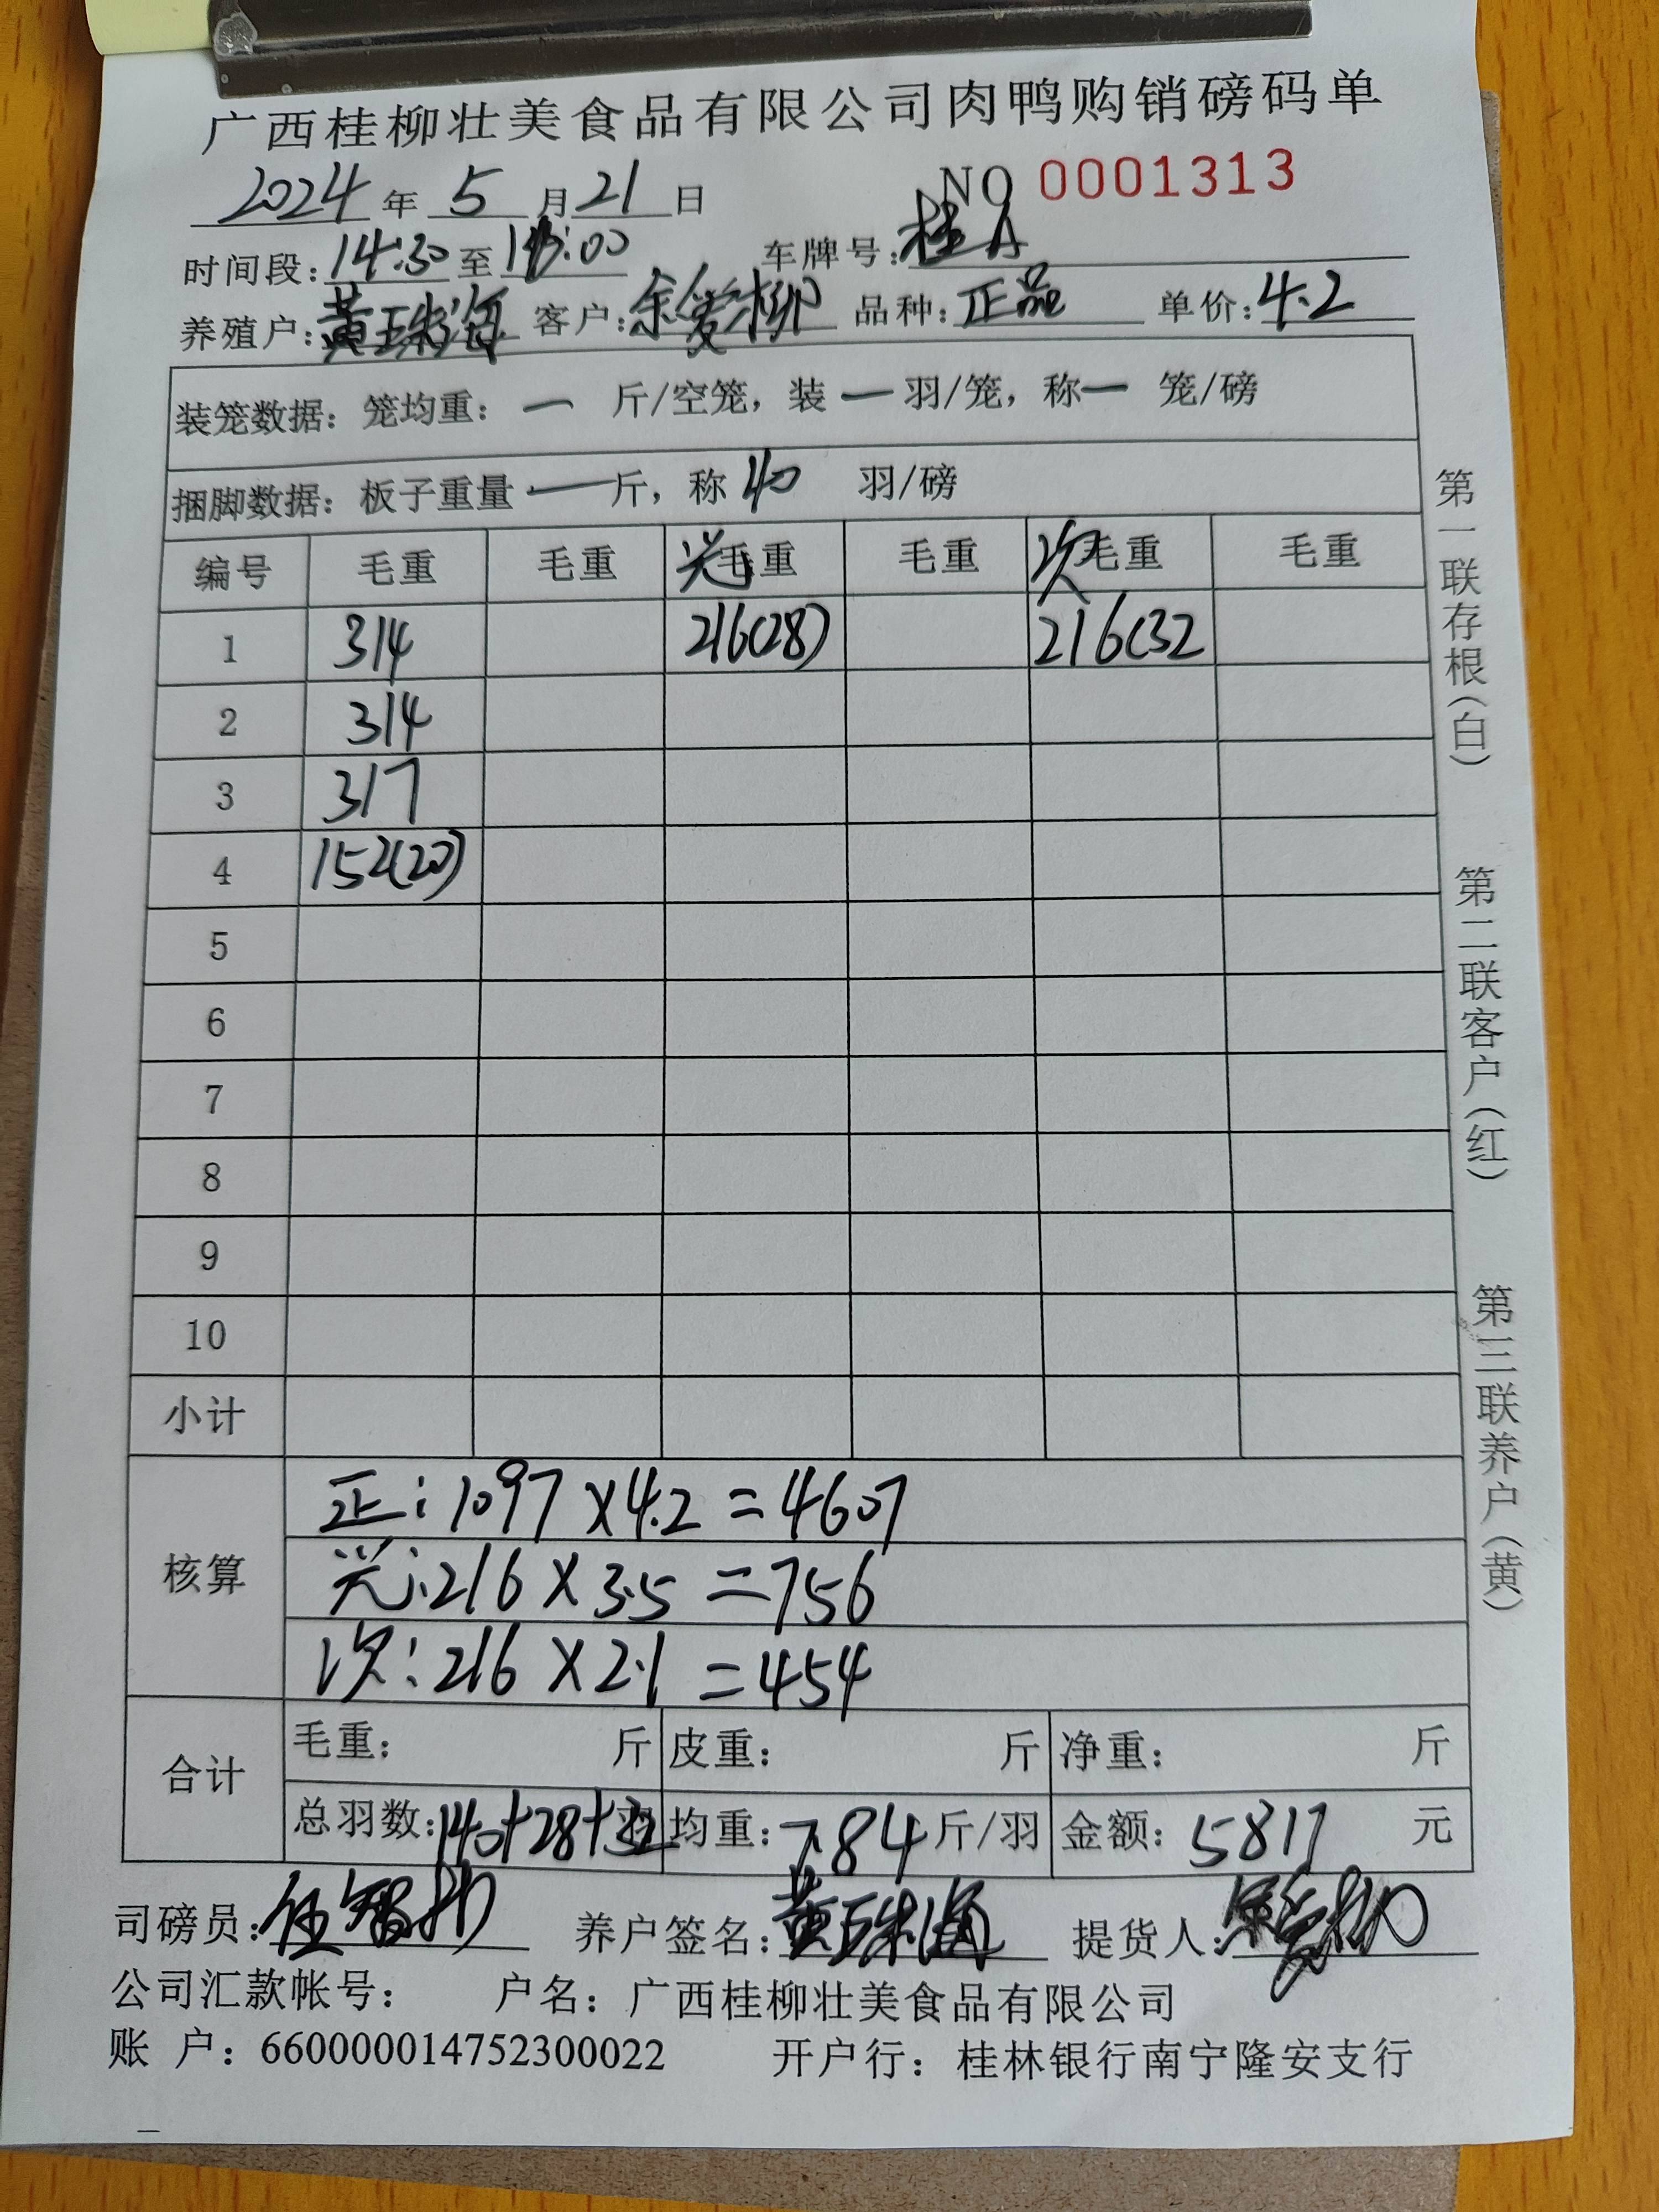 广西桂柳壮美食品有限公司肉鸭购销磅码单
2024 年 5 月 21 日 NO 0001313
时间段: 14:30 至 :00 车牌号: 桂A
养殖户: 黄珠海 客户: 余爱柳 品种: 正品 单价: 4.2
装笼数据: 笼均重: 一 斤/空笼, 装 一 羽/笼, 称 一 笼/磅
捆脚数据: 板子重量 一 斤, 称 40 羽/磅
编号 毛重 毛重 毛重 毛重 次 毛重 毛重
1 314 216(28) 216(32
2 314
3 317
4 152(20)
5
6
7
8
9
10
小计
核算
正: 1097×4.2=4607
216×3.5=756
次: 216×2.1=454
合计
毛重: 斤 皮重: 斤 净重: 斤
总羽数: 140+28+32 羽 均重: 7.84 斤/羽 金额: 5817 元
司磅员: 养户签名: 黄珠海 提货人: 余爱柳
公司汇款帐号: 户名: 广西桂柳壮美食品有限公司
账 户: 660000014752300022 开户行: 桂林银行南宁隆安支行
第一联存根(白)
第二联客户(红)
第三联养户(黄)